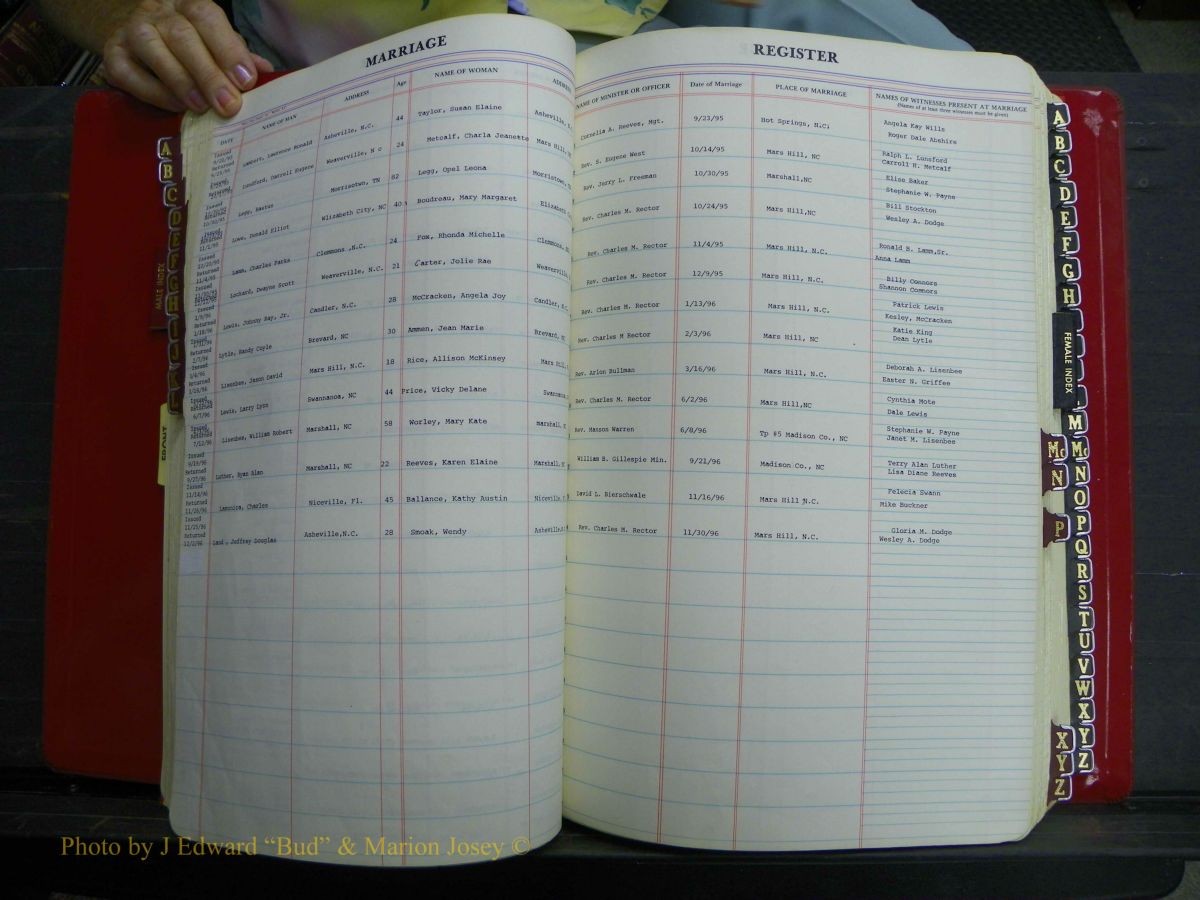 MARRIAGE REGISTER
DATE NAME OF MAN ADDRESS Age NAME OF WOMAN ADDRESS NAME OF MINISTER OR OFFICER Date of Marriage PLACE OF MARRIAGE NAMES OF WITNESSES PRESENT AT MARRIAGE
(Names of at least three witnesses must be given)
Lambert, Lawrence Ronald Asheville, N.C. 44 Taylor, Susan Elaine Asheville, Cornelia A. Reeves, Mgt. 9/23/95 Hot Springs, N.C. Angela Kay Wills
Roger Dale Abshire
Lunsford, Darrell Eugene Weaverville, N C 24 Metcalf, Charla Jeanette Mars Hill, Rev. S. Eugene West 10/14/95 Mars Hill, NC Ralph L. Lunsford
Carroll H. Metcalf
Legg, Rastus Morristown, TN 82 Legg, Opel Leona Morristown, Rev. Jerry L. Freeman 10/30/95 Marshall,NC Elise Baker
Stephanie W. Payne
Lowe, Donald Elliot Wlizabeth City, NC 40 Boudreau, Mary Margaret Elizabeth Rev. Charles M. Rector 10/24/95 Mars Hill,NC Bill Stockton
Wesley A. Dodge
Lamm, Charles Parks Clemmons ,N.C. 24 Fox, Rhonda Michelle Clemmons, Rev. Charles M. Rector 11/4/95 Mars Hill, N.C. Ronald B. Lamm,Sr.
Anna Lamm
Lockard, Dwayne Scott Weaverville, N.C. 21 Carter, Jolie Rae Weaverville, Rev. Charles M. Rector 12/9/95 Mars Hill, N.C. Billy Connors
Shannon Connors
Lewis, Johnny Ray, Jr. Candler, N.C. 28 McCracken, Angela Joy Candler, Rev. Charles M. Rector 1/13/96 Mars Hill, N.C. Patrick Lewis
Kesley, McCracken
Lytle, Randy Coyle Brevard, NC 30 Ammen, Jean Marie Brevard, Rev. Charles M Rector 2/3/96 Mars Hill, NC Katie King
Dean Lytle
Lisenbee, Jason David Mars Hill, N.C. 18 Rice, Allison McKinsey Mars Hill, Rev. Arlon Bullman 3/16/96 Mars Hill, N.C. Deborah A. Lisenbee
Easter N. Griffee
Lewis, Larry Lynn Swannanoa, NC 44 Price, Vicky Delane Swannanoa, Rev. Charles M. Rector 6/2/96 Mars Hill,NC Cynthia Mote
Dale Lewis
Lisenbee, William Robert Marshall, NC 58 Worley, Mary Kate marshall, Rev. Manson Warren 6/8/96 Tp #5 Madison Co., NC Stephanie W. Payne
Janet M. Lisenbee
Luther, Ryan Alan Marshall, NC 22 Reeves, Karen Elaine Marshall, William B. Gillespie Min. 9/21/96 Madison Co., NC Terry Alan Luther
Lisa Diane Reeves
Charles Niceville, Fl. 45 Ballance, Kathy Austin Niceville, David L. Bierschwale 11/16/96 Mars Hill N.C. Felecia Swann
Mike Buckner
Land , Jeffrey Douglas Asheville,N.C. 28 Smoak, Wendy Asheville, Rev. Charles M. Rector 11/30/96 Mars Hill, N.C. Gloria M. Dodge
Wesley A. Dodge
MALE INDEX
A
B
C
D
E
F
G
H
I
J
K
L
FRONT
A
B
C
D
E
F
G
H
FEMALE INDEX
M
Mc
N
O
P
Q
R
S
T
U
V
W
X
Y
Z
Mc
N
P
X
Y
Z
Photo by J Edward “Bud” & Marion Josey ©